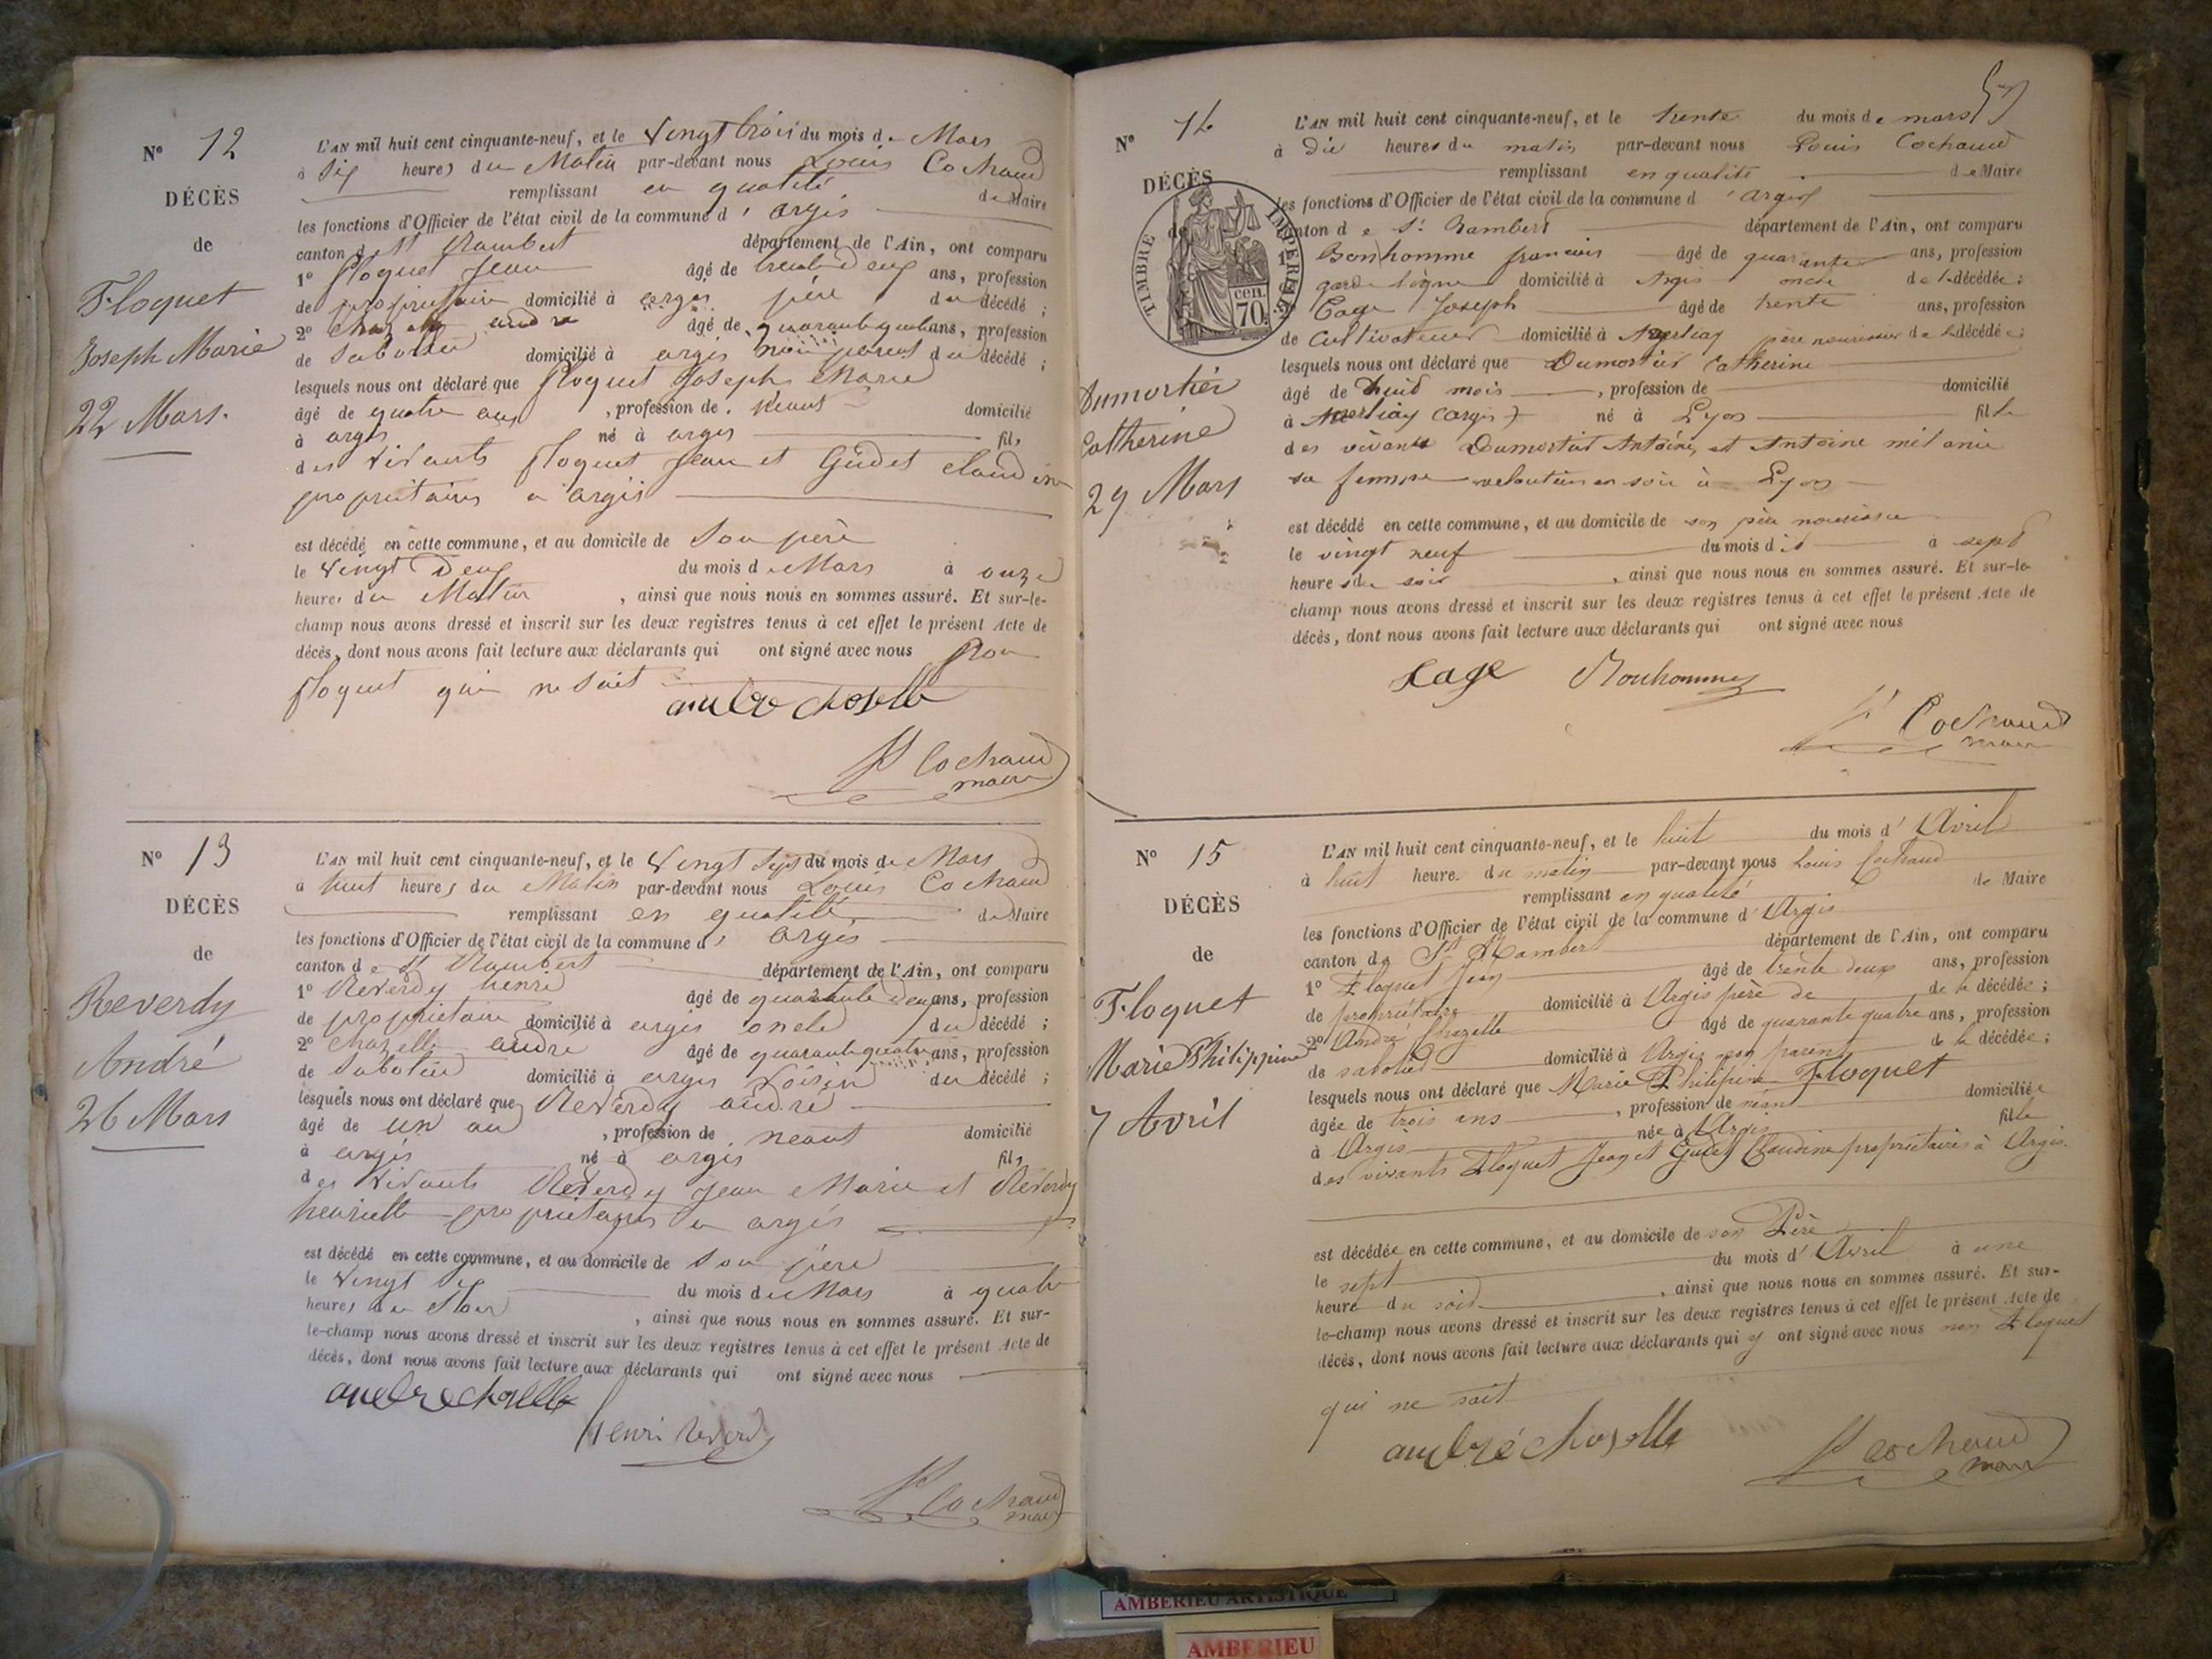 Nº 12
DÉCÈS
de
Floquet
Joseph Marie
22 Mars.
L'AN mil huit cent cinquante-neuf, et le Vingt trois du mois de Mars
à Six heures du Matin par-devant nous Louis Cochaud
remplissant en qualité de Maire
les fonctions d'Officier de l'état civil de la commune d'argis
canton de St Rambert département de l'Ain, ont comparu
1º floquet Jean âgé de trente deux ans, profession
de propriétaire domicilié à argis père du décédé ;
2º Chazelle andre âgé de quarante quatre ans, profession
de Sabotier domicilié à argis non parent du décédé ;
lesquels nous ont déclaré que floquet Joseph Marie
âgé de quatre ans, profession de néant domicilié
à argis né à argis fils
des vivants floquet Jean et Gudet claudine
propriétaires a argis
est décédé en cette commune, et au domicile de Son père
le Vingt Deux du mois de Mars à onze
heures du Matin, ainsi que nous nous en sommes assuré. Et sur-le-
champ nous avons dressé et inscrit sur les deux registres tenus à cet effet le présent Acte de
décès, dont nous avons fait lecture aux déclarants qui ont signé avec nous Non
floquet qui ne Sait
andre choselle
L Cochaud
maire
Nº 13
DÉCÈS
de
Reverdy
André
26 Mars
L'AN mil huit cent cinquante-neuf, et le Vingt Sept du mois de Mars
à huit heures du Matin par-devant nous Louis Cochaud
remplissant en qualité de Maire
les fonctions d'Officier de l'état civil de la commune d'argis
canton de St Rambert département de l'Ain, ont comparu
1º Reverdy henri âgé de quarante deux ans, profession
de propriétaire domicilié à argis oncle du décédé ;
2º chazelle andre âgé de quarante quatre ans, profession
de Sabotier domicilié à argis Voisin du décédé ;
lesquels nous ont déclaré que Reverdy andré
âgé de un an, profession de néant domicilié
à argis né à argis fils
des vivants Reverdy Jean Marie et Reverdy
henriette propriétaires a argis
est décédé en cette commune, et au domicile de Son père
le Vingt Six du mois de Mars à quatre
heures du Soir, ainsi que nous nous en sommes assuré. Et sur-
le-champ nous avons dressé et inscrit sur les deux registres tenus à cet effet le présent Acte de
décès, dont nous avons fait lecture aux déclarants qui ont signé avec nous
andre choselle
henri Reverdy
L Cochaud
maire
57
Nº 14
DÉCÈS
de
TIMBRE IMPERIAL
70 cen.
Dumortier
Catherine
29 Mars
L'AN mil huit cent cinquante-neuf, et le trente du mois de mars
à dix heures du matin par-devant nous Louis Cochaud
remplissant en qualité de Maire
les fonctions d'Officier de l'état civil de la commune d'argis
canton de St Rambert département de l'Ain, ont comparu
1º Bonhomme francois âgé de quarante ans, profession
garde ligne domicilié à Argis de la décédée ;
Cage Joseph âgé de trente ans, profession
de Cultivateur domicilié à père nourricier de la décédée ;
lesquels nous ont déclaré que Dumortier Catherine
âgé de huit mois, profession de domicilié
à (argis) né à Lyon fille
des vivants Dumortier Antoine, et Antoine mélanie
sa femme en soie à Lyon
est décédé en cette commune, et au domicile de son père nourricier
le vingt neuf du mois dit à sept
heures du soir, ainsi que nous nous en sommes assuré. Et sur-le-
champ nous avons dressé et inscrit sur les deux registres tenus à cet effet le présent Acte de
décès, dont nous avons fait lecture aux déclarants qui ont signé avec nous
Cage Bonhomme
L Cochaud
maire
Nº 15
DÉCÈS
de
Floquet
Marie Philippine
7 Avril
L'AN mil huit cent cinquante-neuf, et le huit du mois d'Avril
à huit heure du matin par-devant nous Louis Cochaud
remplissant en qualité de Maire
les fonctions d'Officier de l'état civil de la commune d'Argis
canton de St Rambert département de l'Ain, ont comparu
1º Floquet Jean âgé de trente deux ans, profession
de propriétaire domicilié à Argis père de de la décédée ;
2º André Chazelle âgé de quarante quatre ans, profession
de sabotier domicilié à Argis non parent de la décédée ;
lesquels nous ont déclaré que Marie Philippine Floquet
âgée de trois ans, profession de néant domiciliée
à Argis née à Argis fille
des vivants Floquet Jean et Gudet Claudine propriétaires à Argis.
est décédée en cette commune, et au domicile de son Père
le sept du mois d'Avril à une
heure du soir, ainsi que nous nous en sommes assuré. Et sur-
le-champ nous avons dressé et inscrit sur les deux registres tenus à cet effet le présent Acte de
décès, dont nous avons fait lecture aux déclarants qui y ont signé avec nous non Floquet
qui ne sait
andré choselle
L Cochaud
maire
AMBERIEU ARTISTIQUE
AMBERIEU